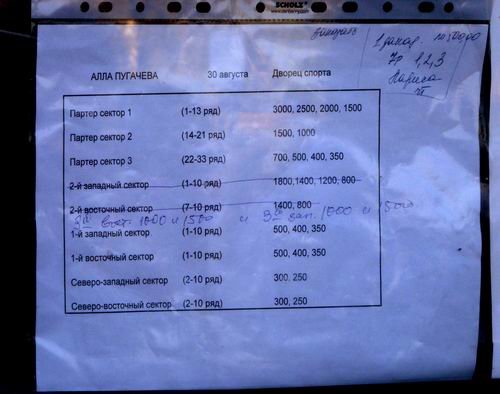 SCHOLZ
АЛЛА ПУГАЧЕВА 30 августа Дворец спорта
1, 2, 3
Партер сектор 1 (1-13 ряд) 3000, 2500, 2000, 1500
Партер сектор 2 (14-21 ряд) 1500, 1000
Партер сектор 3 (22-33 ряд) 700, 500, 400, 350
2-й западный сектор (1-10 ряд) 1800,1400, 1200, 800
2-й восточный сектор (7-10 ряд) 1400, 800
вост. 1000 и 1500 и зап. 1000 и 1500
1-й западный сектор (1-10 ряд) 500, 400, 350
1-й восточный сектор (1-10 ряд) 500, 400, 350
Северо-западный сектор (2-10 ряд) 300, 250
Северо-восточный сектор (2-10 ряд) 300, 250